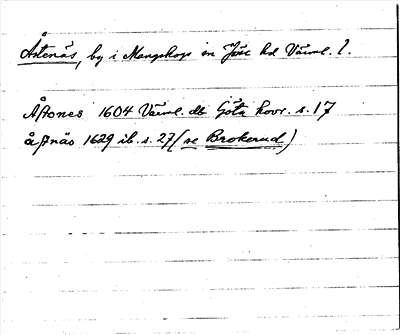 Åstenäs, by i Mangskogs sn Jöse hd Värml. l.
Åstones 1604 Värml. db Göta hovr. s. 17
åstnäs 1629 ib. s. 27 (se Brokerud)